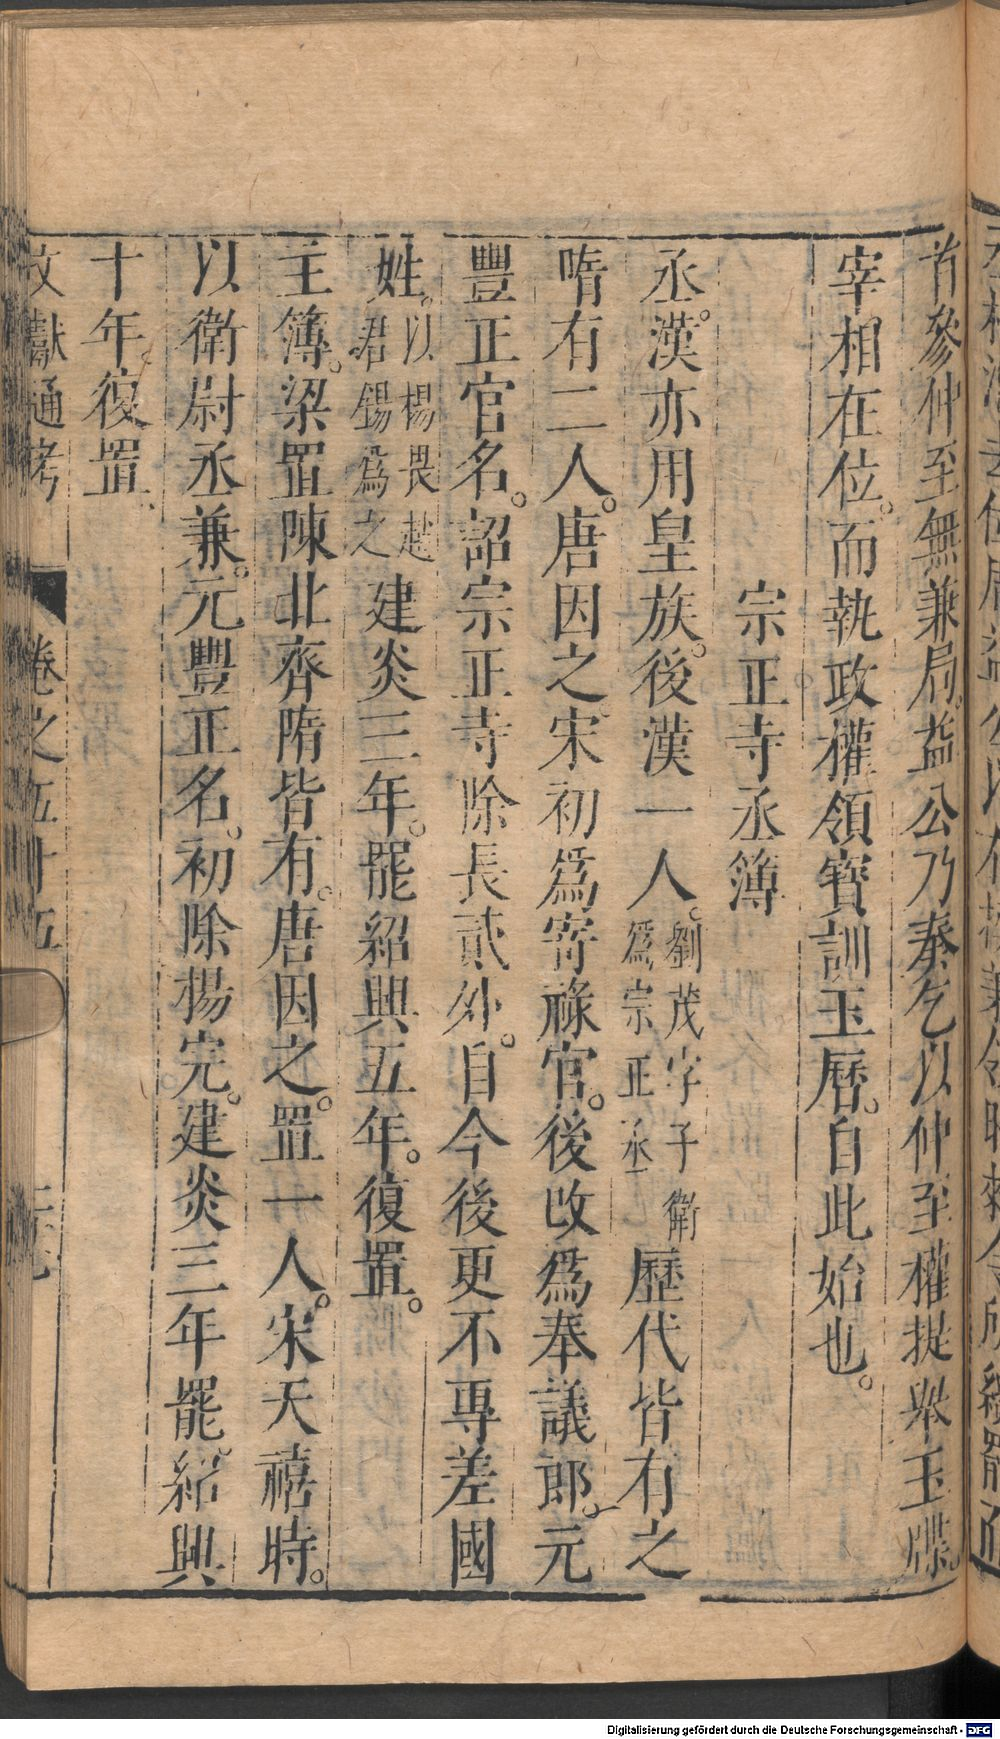 首參仲至無兼局益公乃奏乞以仲至權提舉玉牒。
宰相在位。而執政權領寶訓玉曆。自此始也。
宗正寺丞簿
丞。漢亦用皇族。後漢一人。劉茂字子衛為宗正丞歷代皆有之
隋有二人。唐因之宋初爲寄祿官。後改爲奉議郎。元
豐正官名。詔宗正寺除長貳外。自今後更不專差國
姓。以楊畏趙君錫為之建炎三年。罷紹興五年。復置。
主簿。梁置陳北齊隋皆有。唐因之。置一人。宋天禧時。
以衛尉丞兼。元豐正名。初除楊完。建炎三年罷。紹興
十年。復置
文獻通考 卷之五十五
Digitalisierung gefördert durch die Deutsche Forschungsgemeinschaft - DFG